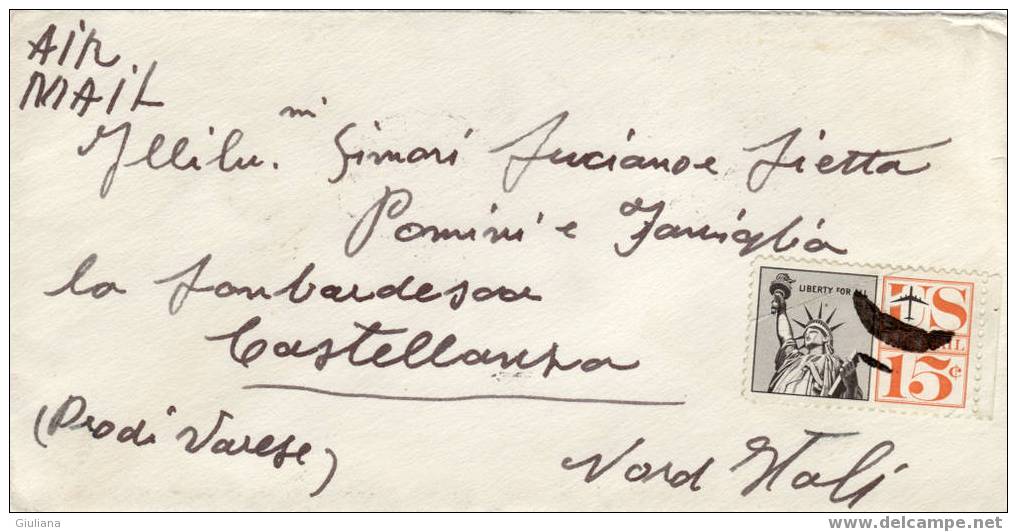 AIR
MAIL
Illilu. mi Simori Lucianoe Lietta
Pomini e Famiglia
la Lombardesa
Castellanza
(Prodi Varese)
Nord Itali
LIBERTY FOR ALL
US
15¢
Giuliana
www.delcampe.net